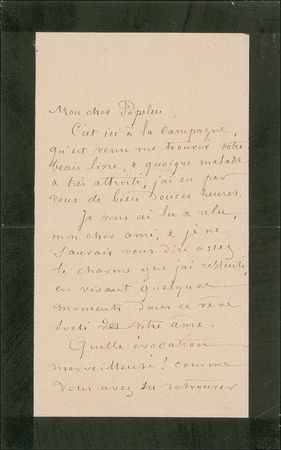 Mon cher Popelin
C'est ici à la campagne,
qu'est venu me trouver votre
beau livre, & quoique malade
& très attristé, j'ai eu par
vous de bien douces heures.
Je vous ai lu & relu,
mon cher ami, & je ne
saurais vous dire assez
le charme que j'ai ressenti,
en vivant quelques
moments dans ce rêve
sorti de votre âme.
Quelle évocation
merveilleuse! comme
vous avez su retrouver